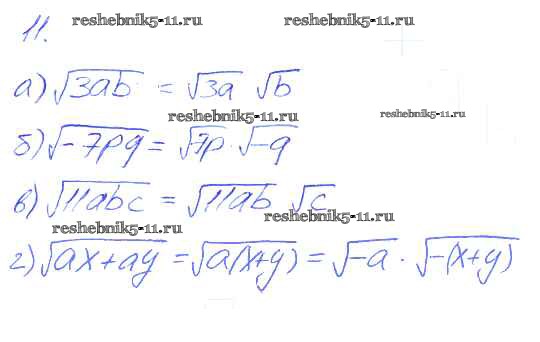 11. reshebnik5-11.ru reshebnik5-11.ru
а) √3ab = √3a √b
reshebnik5-11.ru reshebnik5-11.ru
б) √-7pq = √7p · √-q
в) √11abc = √11ab √c
reshebnik5-11.ru
reshebnik5-11.ru
г) √ax+ay = √a(x+y) = √-a · √-(x+y)